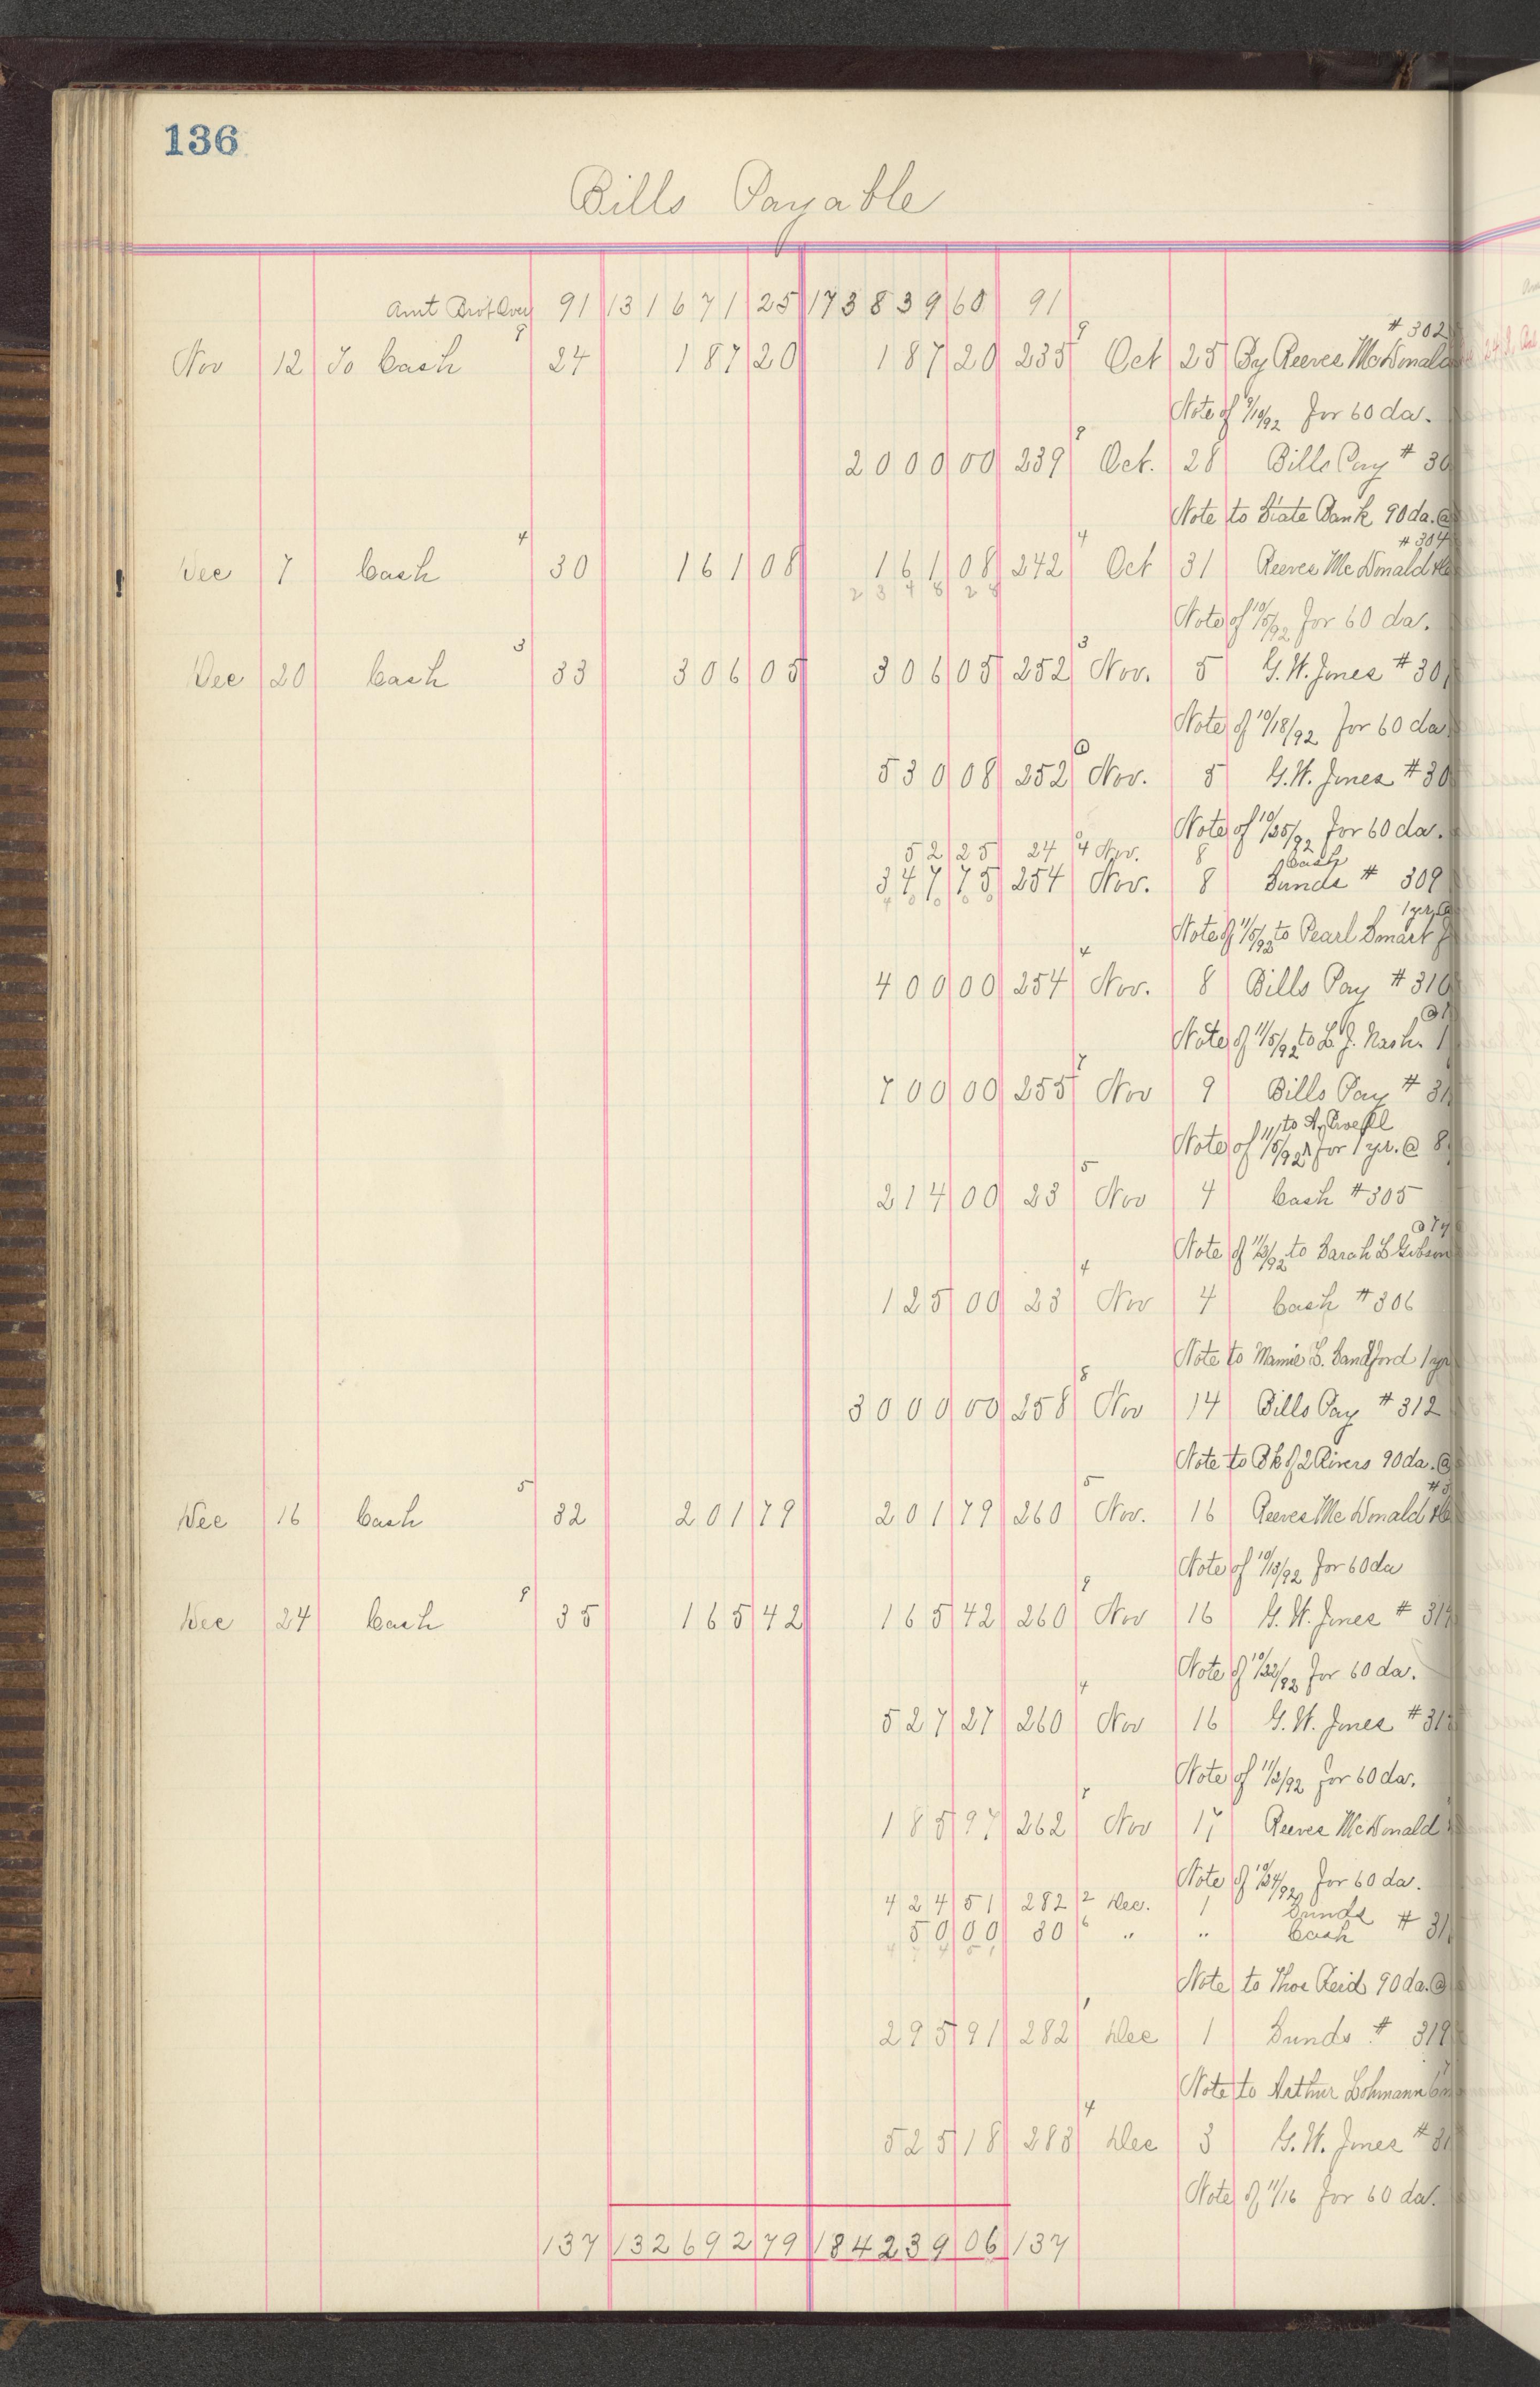 136
Bills Payable
Amt Brot Over 91 131671 25 173839 60 91
# 302
Nov 12 To Cash 9 24 187 20 187 20 235 9 Oct 25 By Reeves McDonald
Note of 9/10/92 for 60 da.
2000 00 239 9 Oct. 28 Bills Pay # 30
Note to State Bank 90 da. @
# 304
Dec 7 Cash 4 30 161 08 161 08 242 4 Oct 31 Reeves McDonald &c
2348 28
Note of 10/5/92 for 60 da.
Dec 20 Cash 3 33 306 05 306 05 252 3 Nov. 5 G. W. Jones # 30
Note of 10/18/92 for 60 da
530 08 252 Nov. 5 G. W. Jones # 30
Note of 10/25/92 for 60 da.
52 25 24 4 Nov. 8 Cash
347 75 254 Nov. 8 Sunds # 309
1 yr @
Note of 11/5/92 to Pearl Smart
400 00 254 4 Nov. 8 Bills Pay # 310
@
Note of 11/5/92 to L. J. Nash. 1
700 00 255 7 Nov 9 Bills Pay # 31
to A.
Note of 11/5/92 for 1 yr. @ 8
214 00 23 5 Nov 4 Cash # 305
@ 7
Note of 11/3/92 to Sarah E Gibson
125 00 23 4 Nov 4 Cash # 306
Note to Mamie S. Sandford 1 yr
3000 00 258 8 Nov 14 Bills Pay # 312
Note to Bk of 2 Rivers 90 da. @
Dec 16 Cash 5 32 201 79 201 79 260 5 Nov. 16 Reeves McDonald &c
Note of 10/13/92 for 60 da
Dec 24 Cash 9 35 165 42 165 42 260 9 Nov 16 G. W. Jones # 314
Note of 10/22/92 for 60 da.
527 27 260 4 Nov 16 G. W. Jones # 31
Note of 11/2/92 for 60 da.
185 97 262 8 Nov 17 Reeves McDonald
Note of 10/24/92 for 60 da.
424 51 282 2 Dec. 1 Sunds
50 00 30 6 " " Cash # 31
Note to Thos Reid 90 da. @
295 91 282 1 Dec 1 Sunds # 319
Note to Arthur Lohmann 6 m
525 18 283 4 Dec 3 G. W. Jones # 31
Note of 11/16 for 60 da.
137 132692 79 184239 06 137